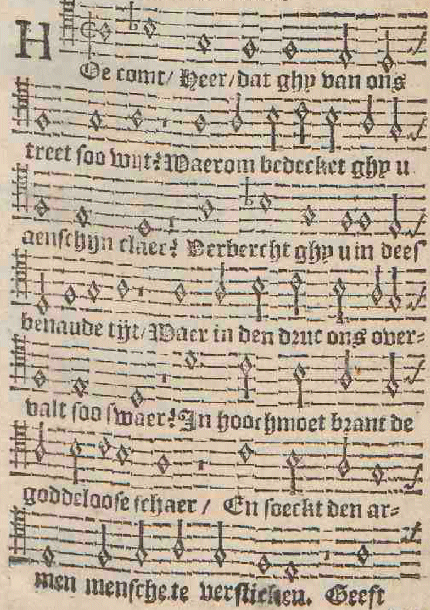 HOe comt/ Heer/dat ghy van ons
treet soo wijt? Waerom bedecket ghy u
aenschijn claer? Verbercht ghy u in dees
benaude tijt/Waer in den druc ons over-
valt soo swaer? In hoochmoet brant de
goddeloose schaer / En soeckt den ar-
men mensche.te versticken. Geeft